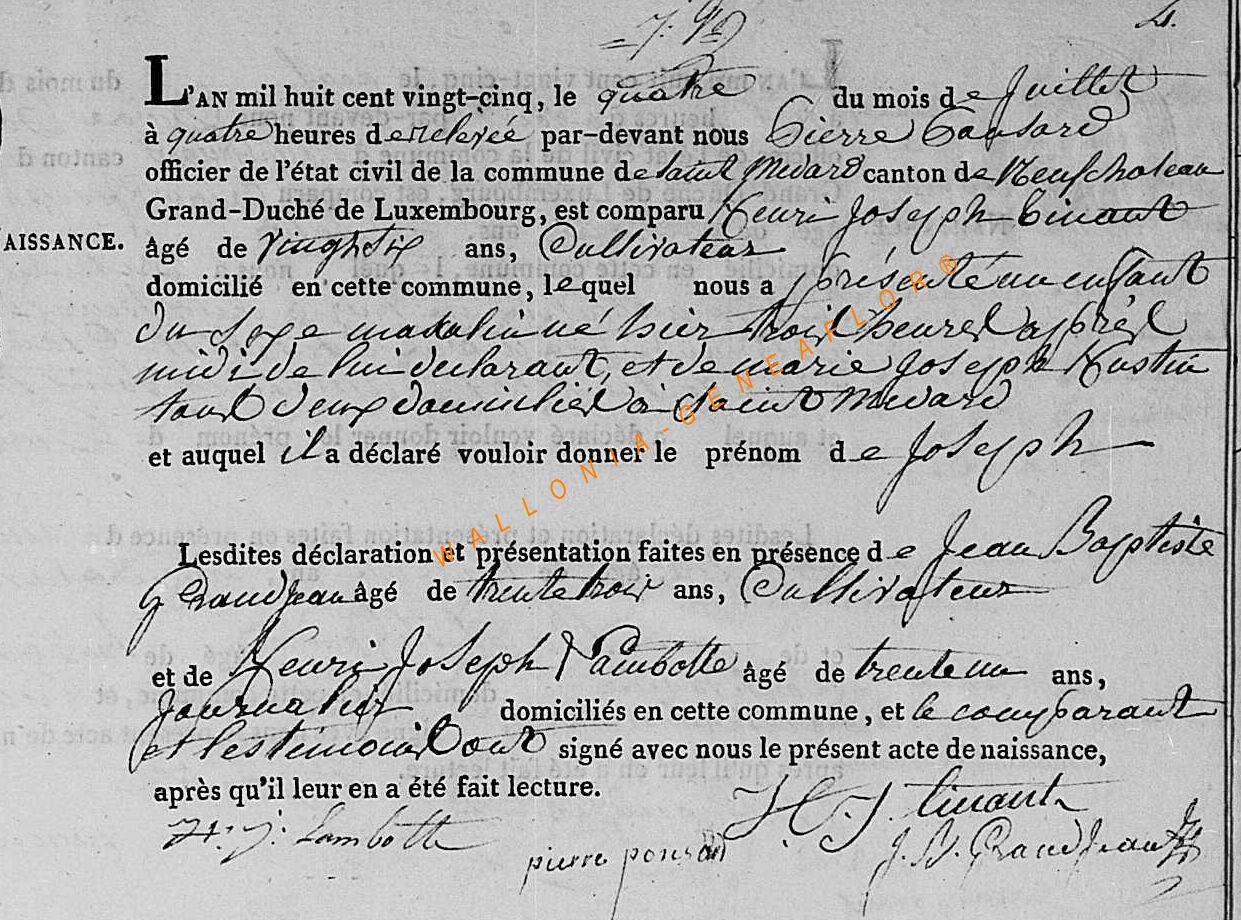 4.
L'AN mil huit cent vingt-cinq, le quatre du mois de Juillet
à quatre heures de relevée par-devant nous Pierre Ponsard
officier de l'état civil de la commune de Saint Medard canton de Neufchateau
Grand-Duché de Luxembourg, est comparu Henri Joseph Tinant
AISSANCE.
âgé de vingt six ans, Cultivateur
domicilié en cette commune, lequel nous a présenté un enfant
du sexe masculin né hier trois heures après
midi de lui declarant, et de marie Joseph Hustin
tous deux domiciliés à Saint Medard
et auquel il a déclaré vouloir donner le prénom de Joseph
Lesdites déclaration et présentation faites en présence de Jean Baptiste
Grandjean âgé de trente trois ans, Cultivateur
et de Henri Joseph Lambotte âgé de trente un ans,
Journalier domiciliés en cette commune, et le comparant
et les temoins ont signé avec nous le présent acte de naissance,
après qu'il leur en a été fait lecture.
H. J. Tinant
H. J. Lambotte
pierre ponsard
J. B. Grandjean
WALLONIA-GENEAFLOR®